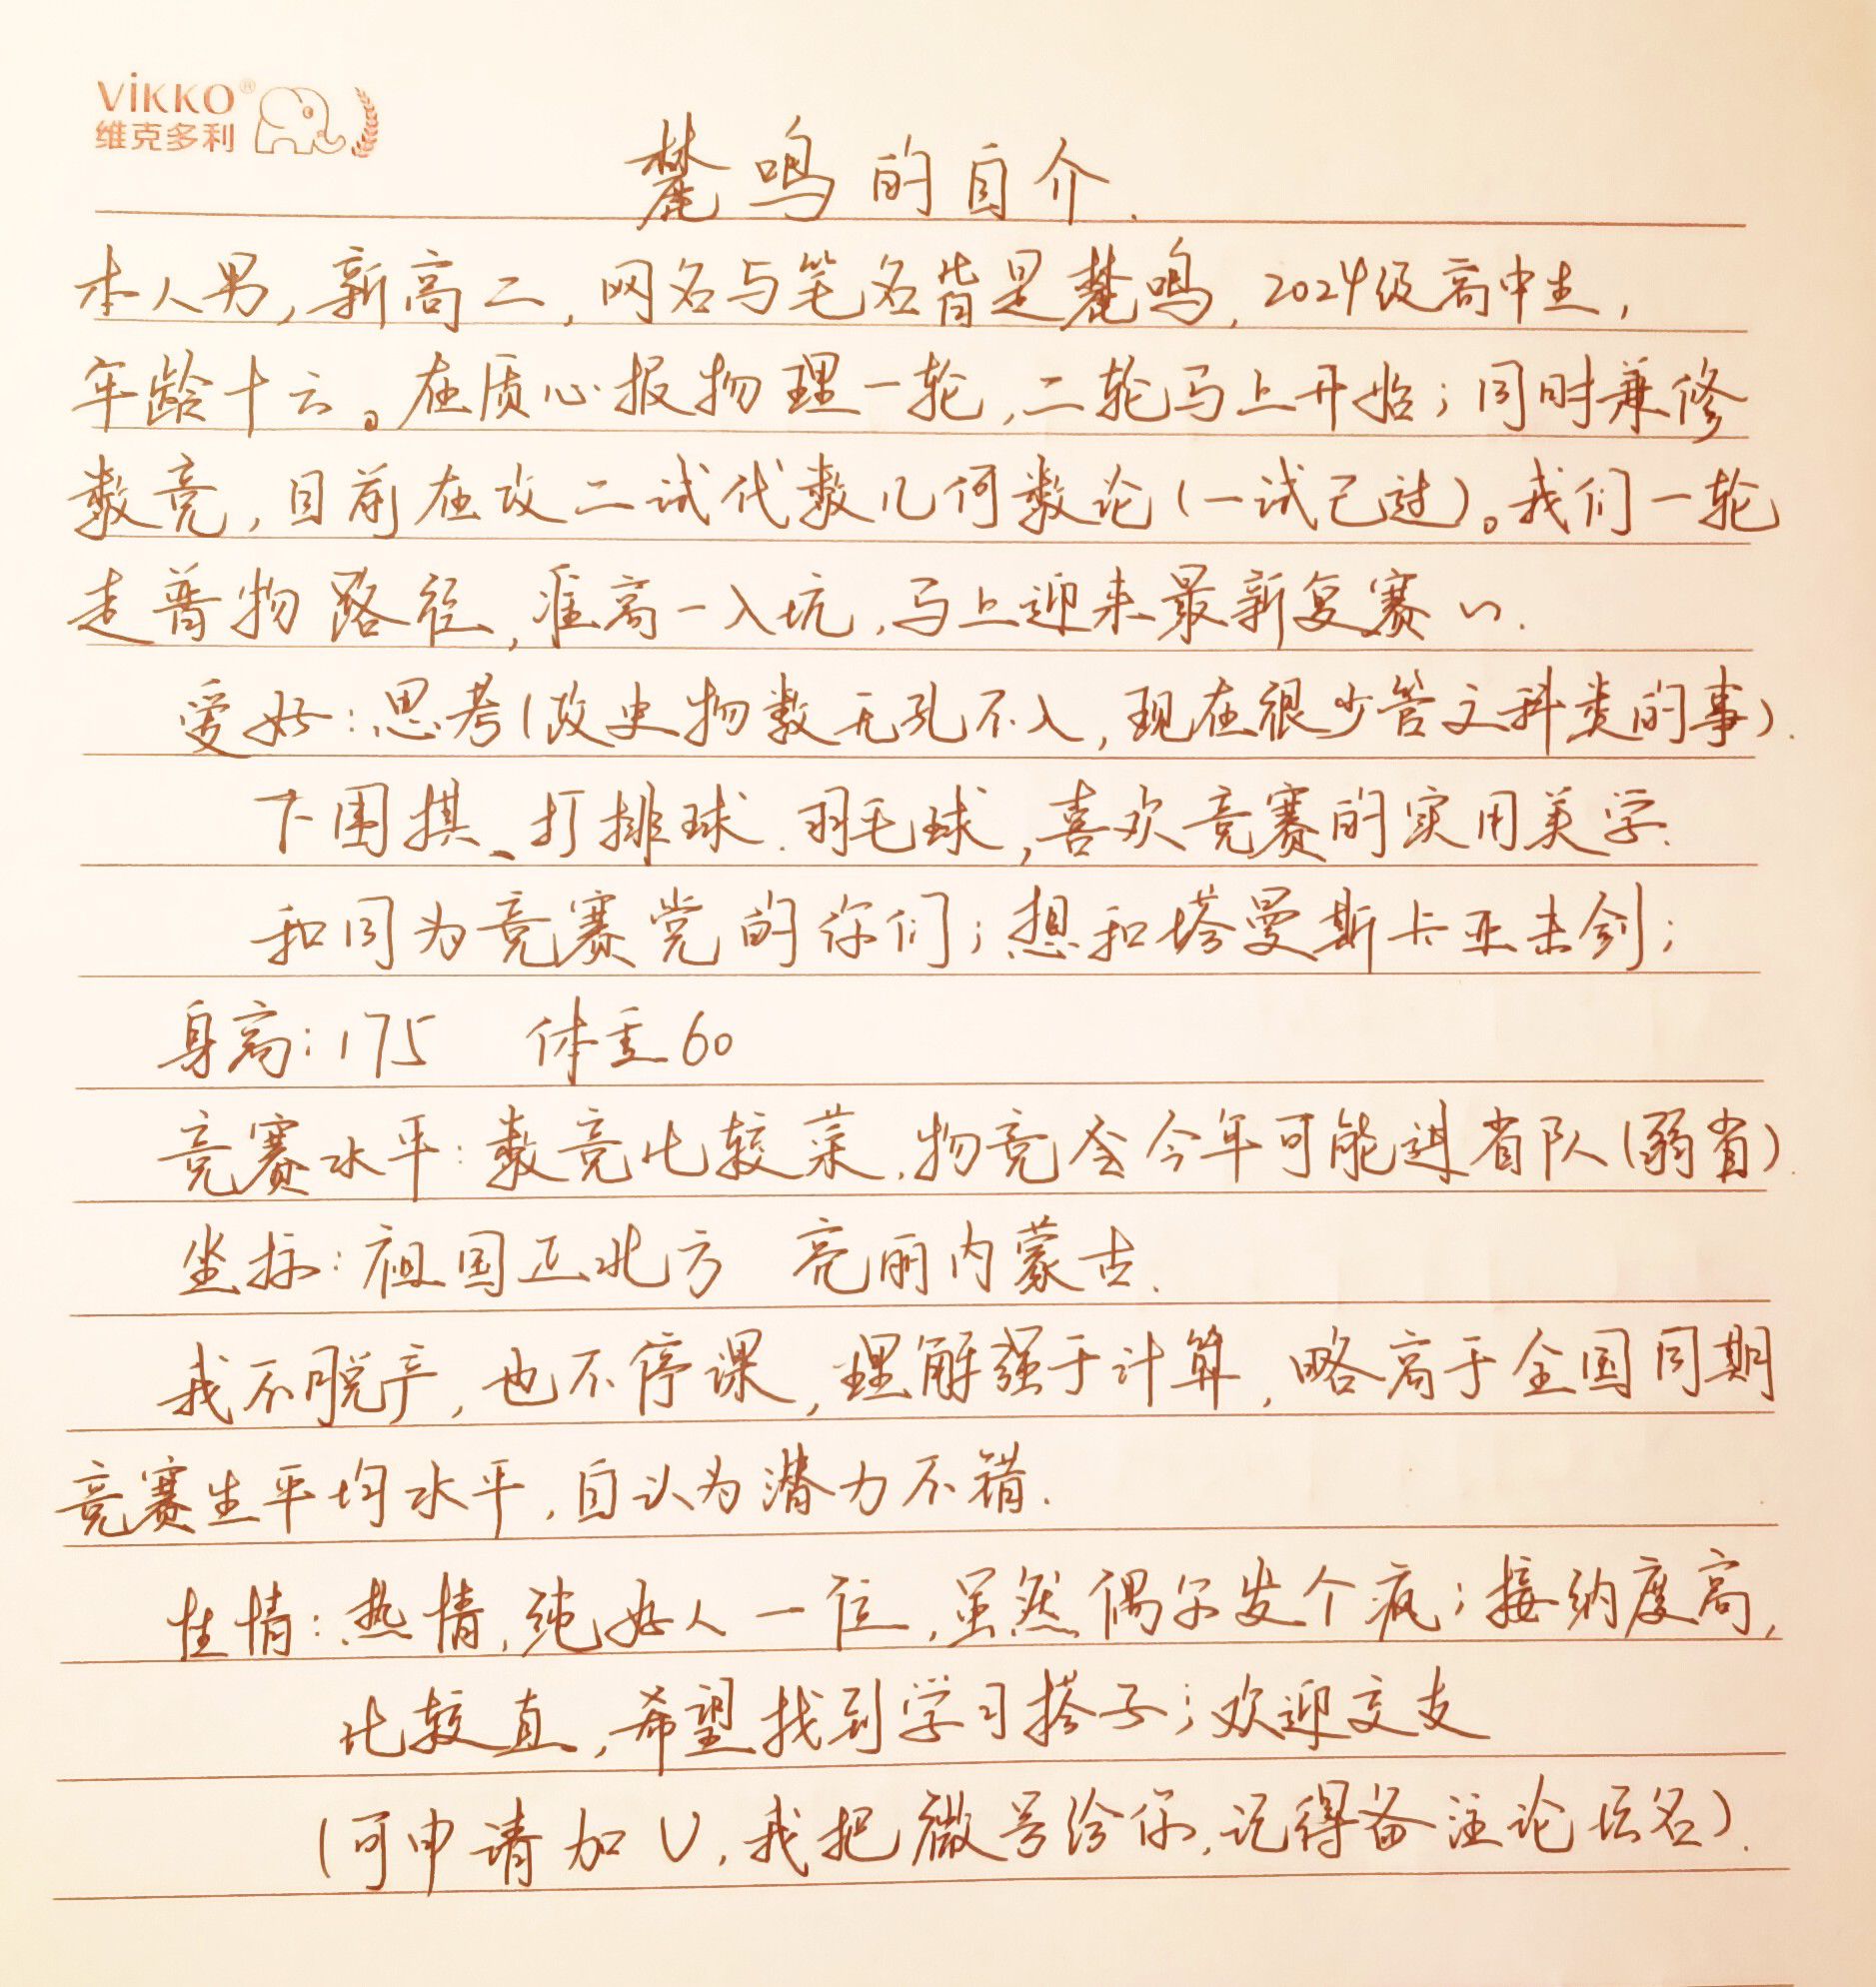 VIKKO®
维克多利
麓鸣的自介.
本人男,新高二,网名与笔名皆是麓鸣,2024级高中生,
年龄十六。在质心报物理一轮,二轮马上开始;同时兼修
数竞,目前在攻二试代数几何数论(一试已过)。我们一轮
走普物路径,准高一入坑,马上迎来最新复赛
爱好:思考(政史物数无孔不入,现在很少管文科类的事).
下围棋、打排球.羽毛球,喜欢竞赛的实用美学.
和同为竞赛党的你们;想和塔曼斯卡亚击剑;
身高:175 体重60
竞赛水平:数竞比较菜,物竞会今年可能进省队(弱省).
坐标:祖国正北方 亮丽内蒙古.
我不脱产,也不停课,理解强于计算,略高于全国同期
竞赛生平均水平,自认为潜力不错.
性情:热情,纯好人一位,虽然偶尔发个疯;接纳度高,
比较直,希望找到学习搭子;欢迎交友
(可申请加V,我把微号给你,记得备注论坛名).